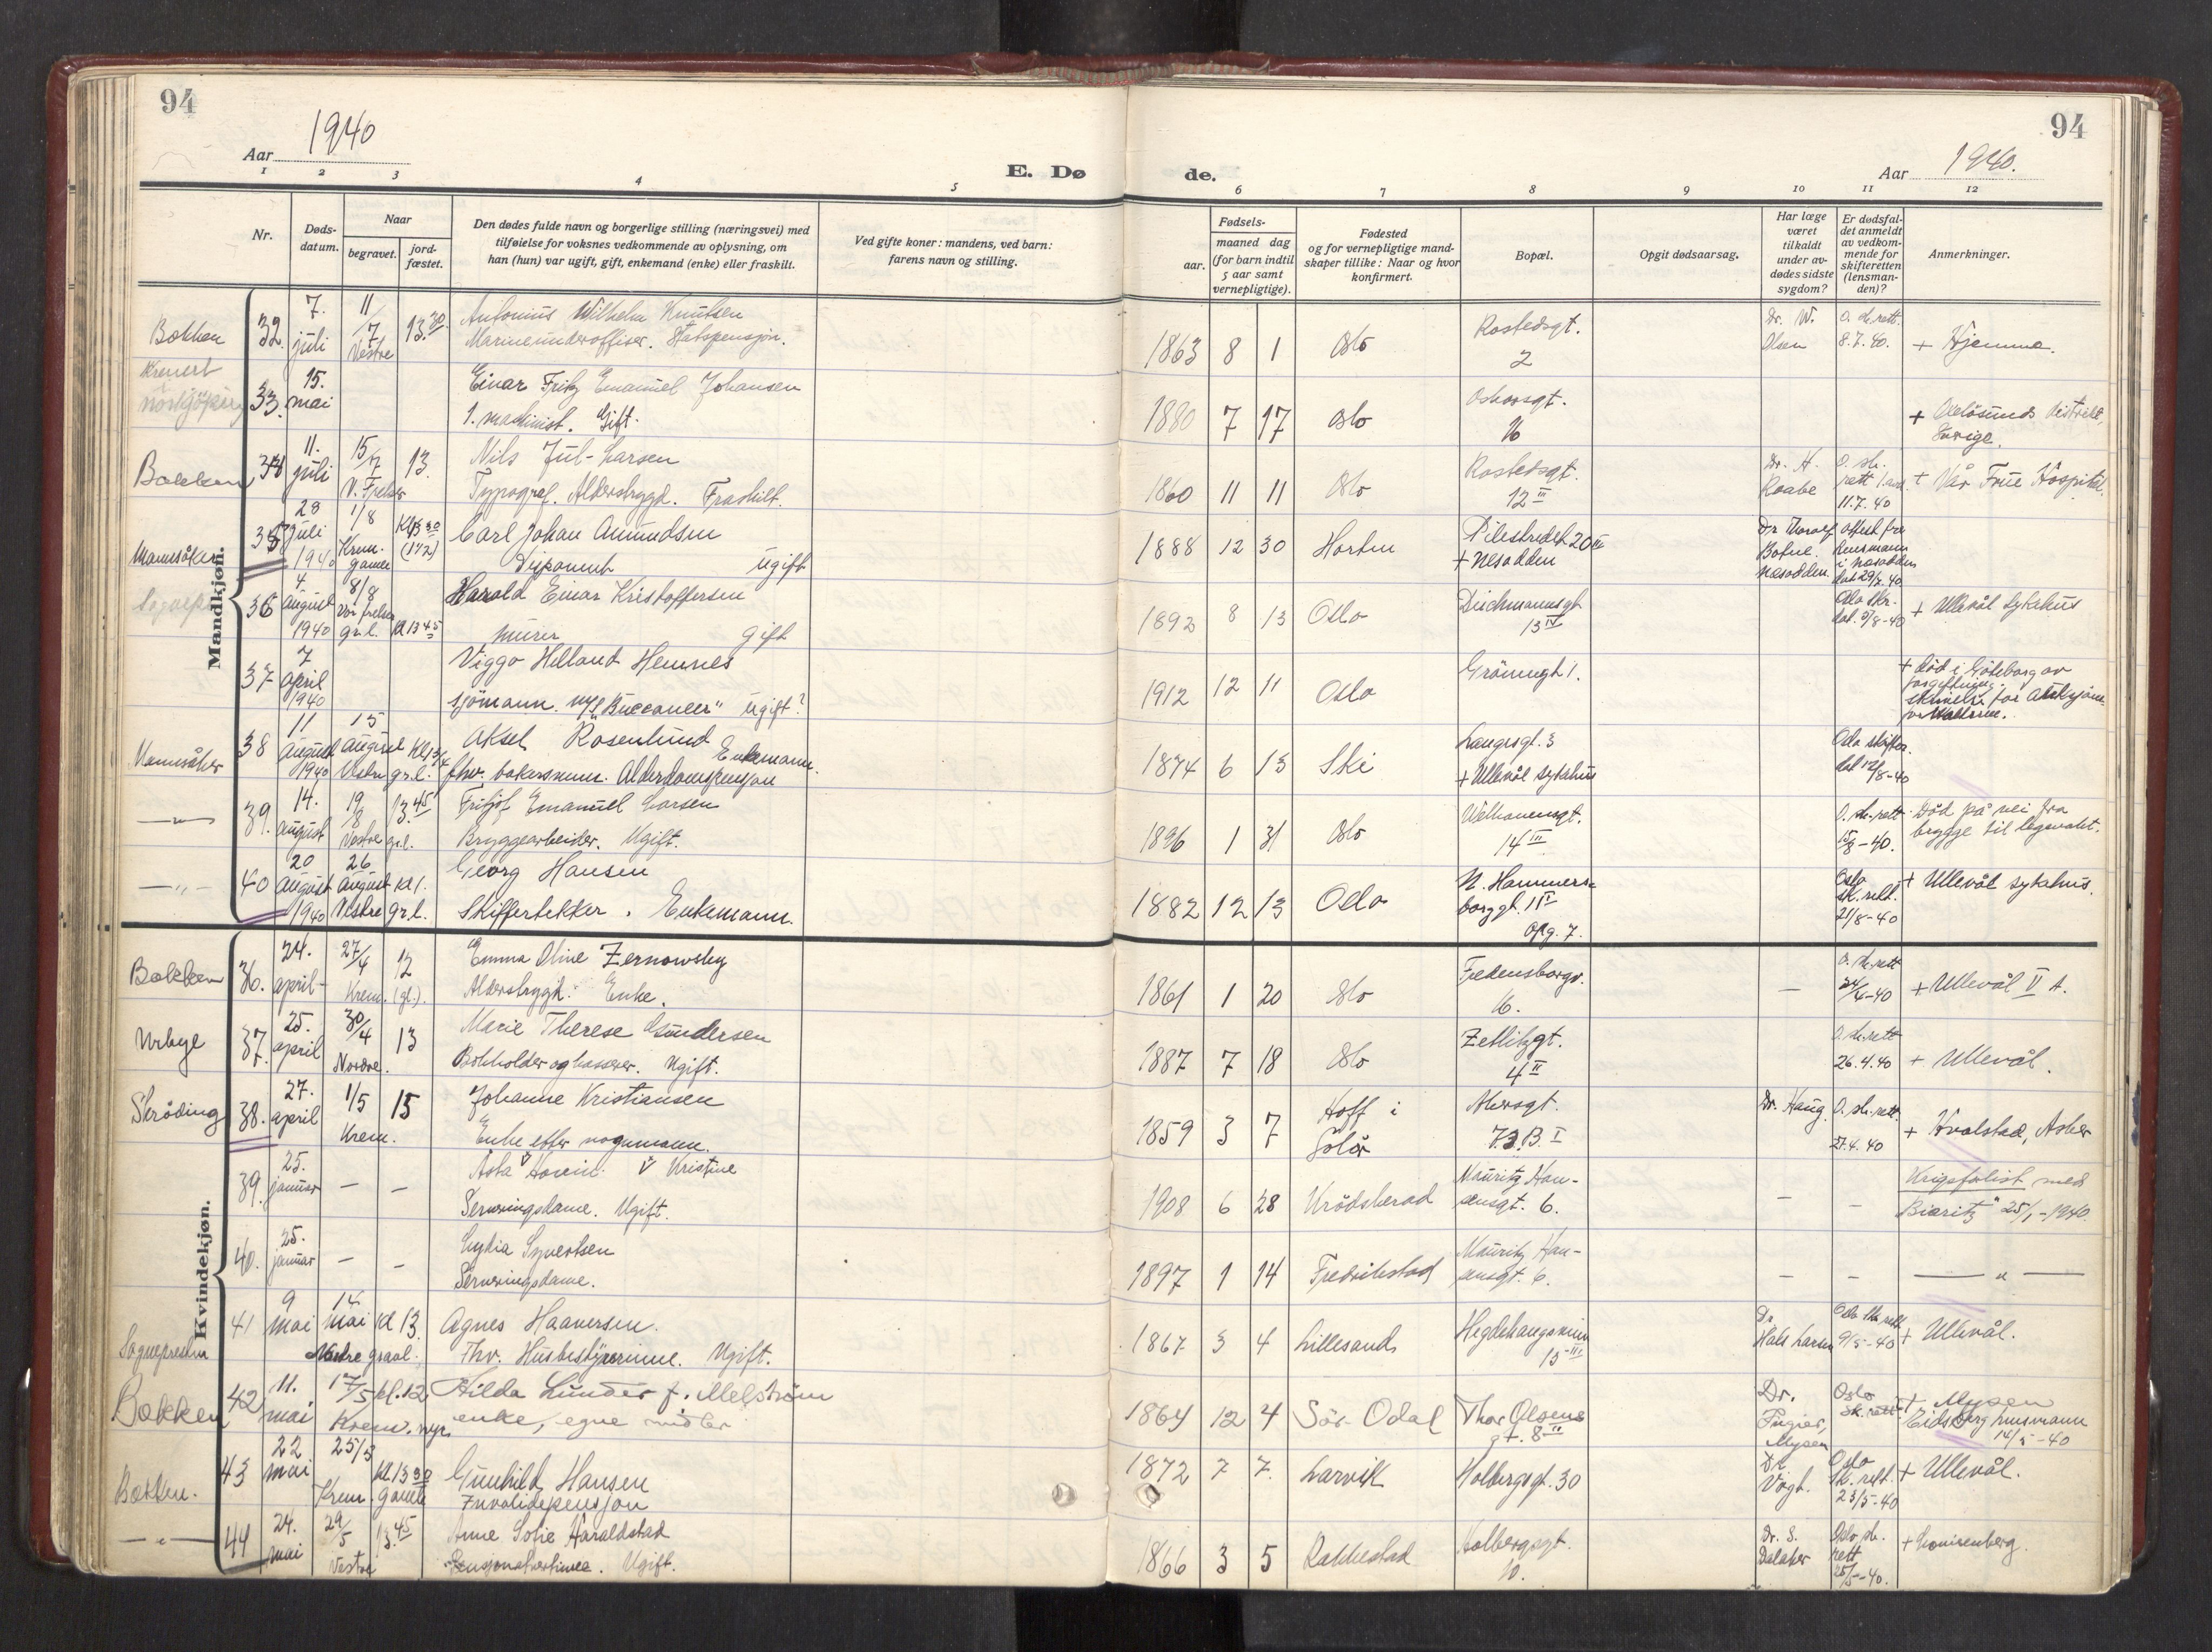 94
Aar 1940
E. Dø
1
2
3
4
5
Nr.
Døds-
datum.
Naar
begravet.
jord-
fæstet.
Den dødes fulde navn og borgerlige stilling (næringsvei) med
tilføielse for voksnes vedkommende av oplysning, om
han (hun) var ugift, gift, enkemand (enke) eller fraskilt.
Ved gifte koner: mandens, ved barn:
farens navn og stilling.
Mandkjøn.
Bakken
32. 7. juli 11/7 Vestre 13.30
Antonius Wilhelm Knutsen
Marineunderoffiser. Statspensjon.
33. 15. mai
Einar Fritz Emanuel Johansen
1. maskinist. Gift.
Bakken
34 11. juli 15/7 V. Frelser 13.
Nils Jul-Larsen
Typograf. Alderstrygd. Fraskilt.
35 28 juli 1940 1/8 Krem. gamle
Carl Johan Amundsen
Disponent ugift
36 4 august 1940 8/8 Vår frelser gr.l. kl 13 45
Harald Einar Kristoffersen
murer gift
37 7 april 1940
Viggo Helland Hemnes
sjømann. M/S "Buccaneer" ugift?
38 11 august 1940 15 august Vestre gr.l.
Aksel Rosenlund Enkemann.
fhv. bakersvenn. Alderdomspensjon
39. 14. august 19/8 Vestre gr.l. 13.45
Fritjof Emanuel Larsen
Bryggearbeider. Ugift.
— " —
40 20 august 1940 26 august Vestre gr.l. kl 1.
Georg Hansen
Skiffertekker. Enkemann.
Kvindekjøn.
Bakken
36. 24. april 27/4 Krem. (gl.) 12
Emma Oline Zernowsky
Alderstrygd. Enke.
37. 25. april 30/4 Nordre. 13
Marie Therese Gundersen
Bokholder og kasserer. Ugift.
Skrøding
38. 27. april 1/5 Krem. 15
Johanne Kristiansen
Enke etter vognmann.
39. 25. januar — —
Asta Hovin. Kristine
Serveringsdame. Ugift.
40. 25. januar — —
Lydia Syvertsen
Serveringsdame.
Sognepresten
41 9 mai 14 mai kl 13.
Agnes Haaversen.
Fhv. Husbestyrerinne. Ugift.
Bakken
42 11. mai 17/5 kl. 12 Krem. nye
Hilda Lunder f. Melström
enke, egne midler
Bakken.
43 22 mai 25/5 Krem. gamle kl. 13 30
Gunhild Hansen
Invalidepensjon
— " —
44 24. mai 29/5 Vestre 13.45
Anne Sofie Haraldstad
Pensjonatvertinne. Ugift.
94
de.
Aar 1940.
6
7
8
9
10
11
12
Fødsels-
aar.
maaned dag
(for barn indtil
5 aar samt
vernepligtige).
Fødested
og for vernepligtige mand-
skaper tillike: Naar og hvor
konfirmert.
Bopæl.
Opgit dødsaarsag.
Har læge
været
tilkaldt
under av-
dødes sidste
sygdom?
Er dødsfal-
det anmeldt
av vedkom-
mende for
skifteretten
(lensman-
den)?
Anmerkninger.
1863 8 1 Oslo Rostedsgt. 2 Dr. W. Olsen O. sk.rett. 8.7.40. + Hjemme.
1880 7 17 Oslo Oskarsgt. 16 + Oxelösunds distrikt, Sverige.
1860 11 11 Oslo Rostedsgt. 12 III Dr. H. Raabe O. sk. rett 1. avd. 11.7.40 + Vår Frue Hospital.
1888 12 30 Horten Pilestredet 20 III + Nesodden Dr Botne. Nesodden. Attest fra lensmann i Nesodden dat 29/7.40
1892 8 13 Oslo Deichmannsgt. 13 IV Oslo skr. dat. 5/8-40 + Ullevål sykehus
1912 12 11 Oslo Grönnegt 1. + Död i Göteborg av forgiftning.
1874 6 13 Ski Langesgt. 3 + Ullevål sykehus Oslo skifter. dat 12/8-40
1896 1 31 Oslo Welhavensgt. 14 III O. sk.rett 15/8-40. Död på vei fra brygge til legevakt.
1882 12 13 Oslo N. Hammersborggt. 11 I opg. 7. Oslo sk.rett. 21/8-40 + Ullevål sykehus.
1861 1 20 Oslo Fredensborgv. 6. — O. sk.rett 24/4-40 + Ullevål V A.
1887 7 18 Oslo Zetlitzgt. 4 II O. sk.rett 26.4.40 + Ullevål.
1859 3 7 Hoff i Solör Akersgt. 73 B. I Dr. Haug. O. sk.rett. 27.4.40 + Hvalstad, Asker
1908 6 28 Krödsherad Mauritz Hansensgt. 6. — — Krigsforlist med "Biarritz" 25/1-1940.
1897 1 14 Fredrikstad Mauritz Hansensgt. 6. — — — " —
1867 3 4 Lillesand Hegdehaugsveien 15 III Dr Hals Larsen Oslo sk.rett 9/5-40 + Ullevål.
1864 12 4 Sör-Odal Thor Olsens gt. 8 II Dr. Mysen Oslo sk.rett + Mysen Eidsberg lensmann 14/5-40
1872 7 7. Larvik Holbergsgt. 30 Dr. Vogt. Oslo sk.rett. 23/5-40 + Ullevål.
1866 3 5 Rakkestad Holbergsgt. 10. Dr. S. Dalaker Oslo sk. rett 25/5-40. + Lovisenberg.